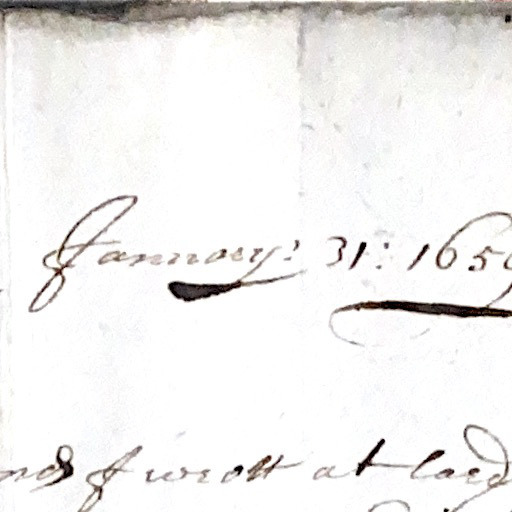 January: 31: 1659
and I wrott at larg